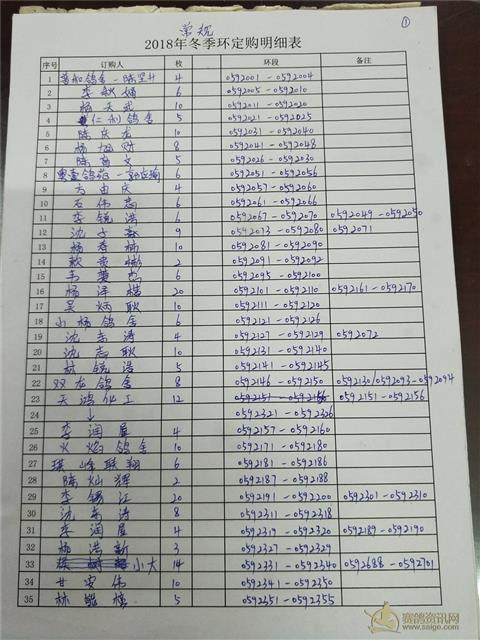 常规 ①
2018年冬季环定购明细表
序号 订购人 枚 环段 备注
1 4 0592001-0592004
2 李秋娟 6 0592005-0592010
3 杨天武 10 0592011-0592020
4 仁利鸽舍 5 0592021-0592025
5 陈庆龙 10 0592031-0592040
6 杨旭财 8 0592041-0592048
7 陈 文 5 0592026-0592030
8 6 0592051-0592056
9 方由庆 4 0592057-0592060
10 石伟忠 6 0592061-0592066
11 李锐浩 6 0592067-0592070 0592049-0592050
12 沈子 9 0592073-0592080 0592071
13 杨 楠 10 0592081-0592090
14 2 0592091-0592092
15 韦 杰 6 0592095-0592100
16 杨泽楷 20 0592101-0592110 0592161-0592170
17 吴炳耿 10 0592111-0592120
18 小杨鸽舍 6 0592121-0592126
19 沈 涛 4 0592127-0592129 0592072
20 沈志耿 10 0592131-0592140
21 林锐浩 5 0592141-0592145
22 双龙鸽舍 8 0592146-0592150 0592130/0592093-0592094
23 天鸿化工 12 0592151-0592156
24 ↓ 0592321-0592326
25 李润屋 4 0592157-0592160
26 火焰鸽舍 10 0592171-0592180
27 峰联翔 6 0592181-0592186
28 陈灿辉 2 0592187-0592188
29 李锡江 20 0592191-0592200 0592301-0592310
30 沈 涛 8 0592311-0592318
31 李润屋 4 0592319-0592320 0592189-0592190
32 杨洪新 3 0592327-0592329
33 小大 14 0592331-0592340 0592688-0592701
34 甘安伟 10 0592341-0592350
35 林 5 0592351-0592355
赛鸽资讯网
www.saige.com